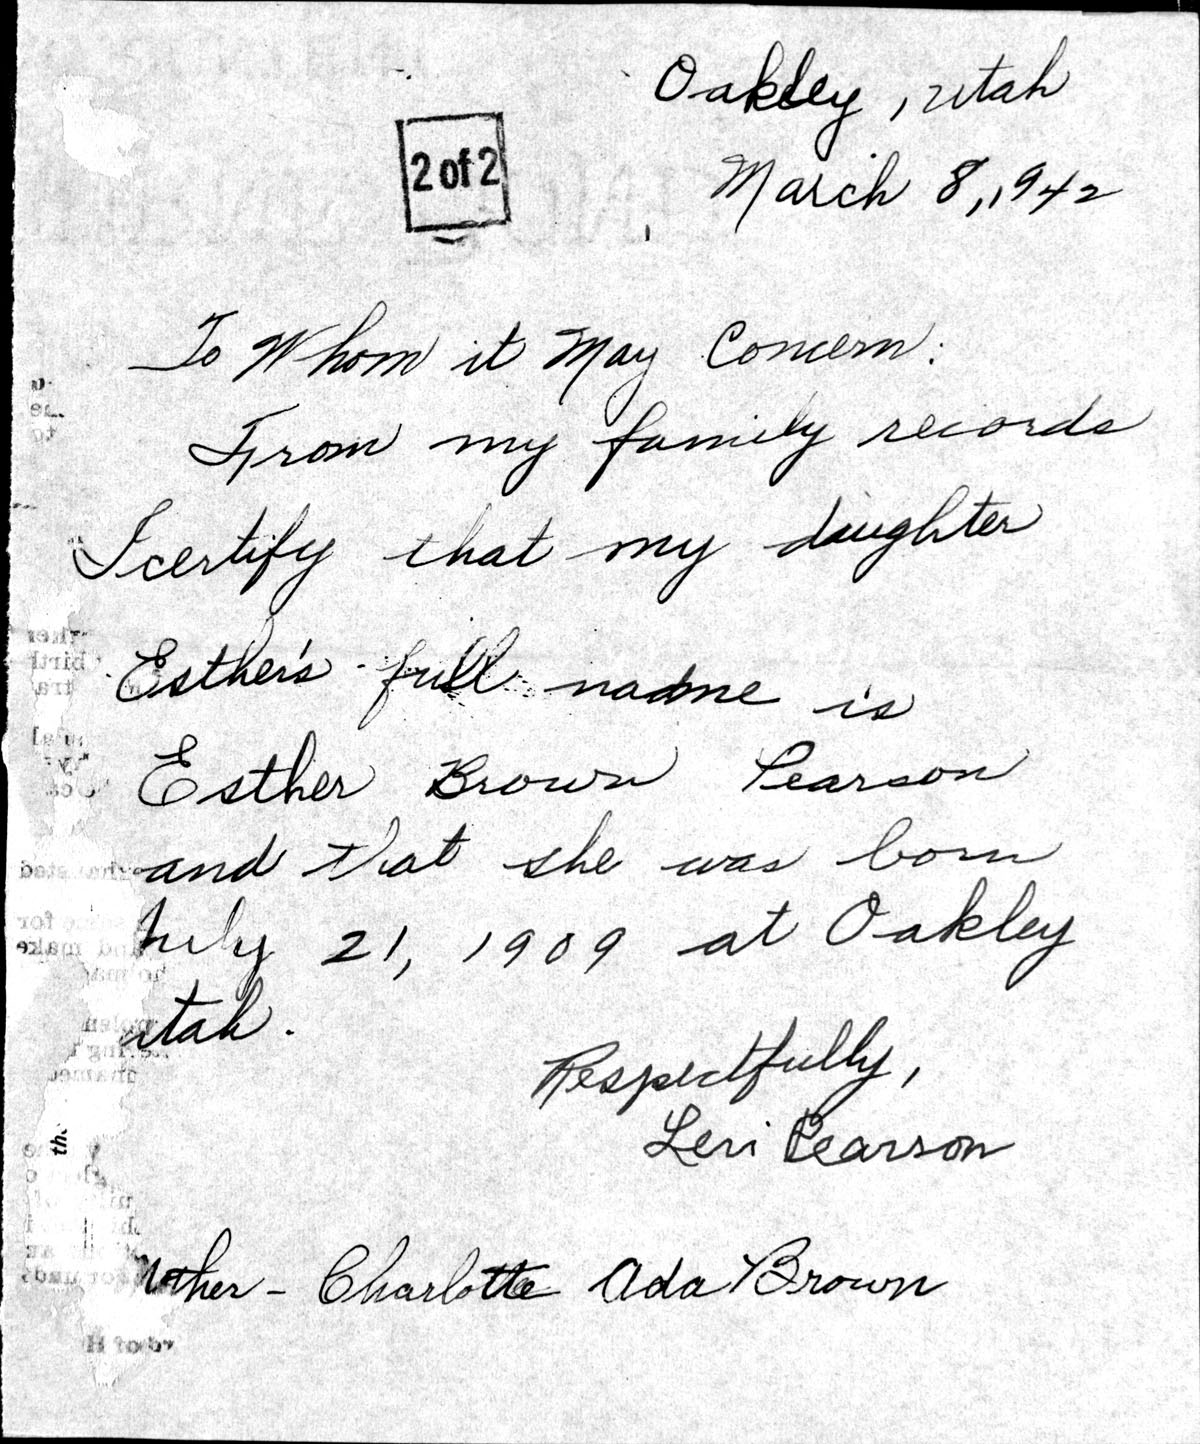 Oakley, Utah
2 of 2
March 8, 1942
To Whom it May Concern:
From my family records
I certify that my daughter
Esther's full name is
Esther Brown Pearson
and that she was born
July 21, 1909 at Oakley
utah.
Respectfully,
Levi Pearson
Mother - Charlotte Ada Brown